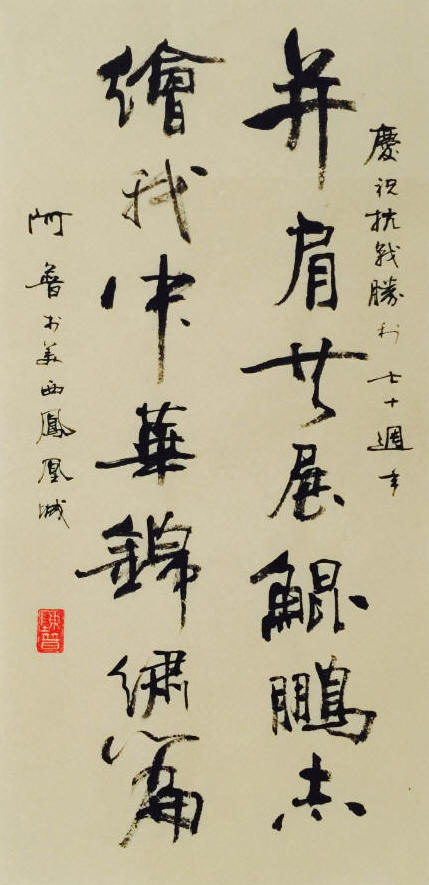 慶祝抗戰勝利七十週年
并肩共展鯤鵬志
繪我中華錦繡篇
阿普於美西鳳凰城
陳普